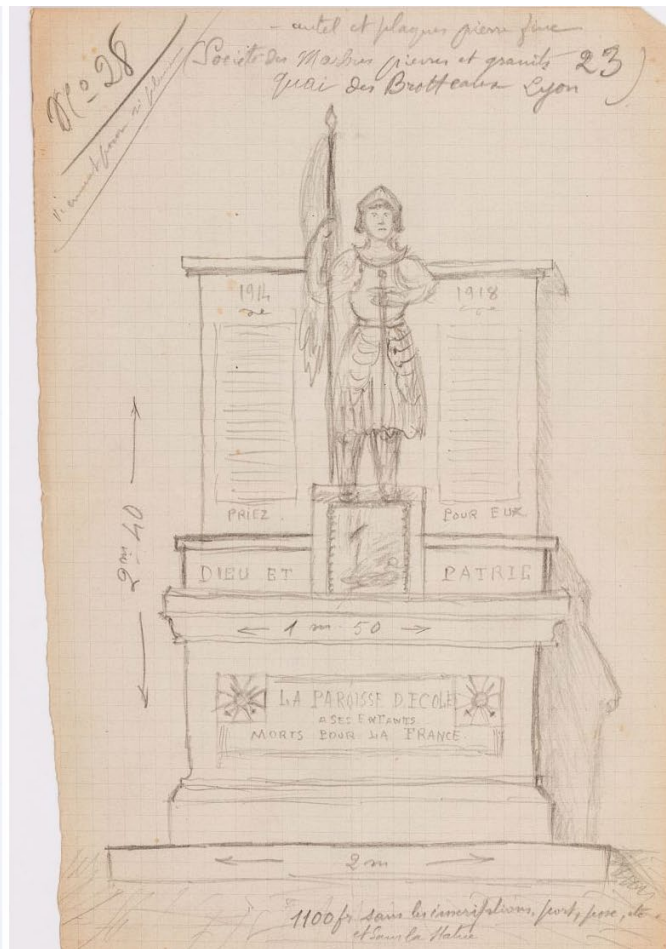 - autel et plaques pierre fine
(Société des Marbres pierres et granits 23)
quai des Brotteaux Lyon
N° 28
1914
1918
PRIEZ
POUR EUX
DIEU ET
PATRIE
2m 40
1 m 50
LA PAROISSE D'ECOLE
A SES ENFANTS
MORTS POUR LA FRANCE
2 m
1100 fr sans les inscriptions, port, pose, etc.
et sans la statue